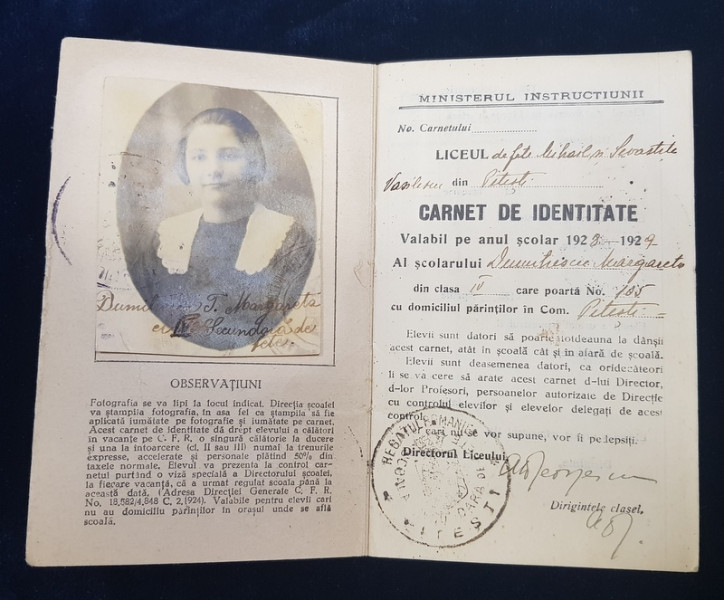 Dumi T. Margareta
cl. IV Secundară de
fete.
OBSERVAȚIUNI
Fotografia se va lipi la locul indicat. Direcția școalei
va ștampila fotografia, în așa fel ca ștampila să fie
aplicată jumătate pe fotografie și jumătate pe carnet.
Acest carnet de identitate dă drept elevului a călători
în vacanțe pe C. F. R. o singură călătorie la ducere
și una la întoarcere (cl. II sau III) numai la trenurile
expresse, accelerate și personale plătind 50% din
taxele normale. Elevul va prezenta la control car-
netul purtând o viză specială a Directorului școalei,
la fiecare vacanță, că a urmat regulat școala până la
această dată. (Adresa Direcției Generale C. F. R.
No. 18,582/4,848 C, 2,1924). Valabile pentru elevii cari
nu au domiciliul părinților în orașul unde se află
școală.
MINISTERUL INSTRUCTIUNII
No. Carnetului
LICEUL de fete Mihail și Sevastița
Vasilescu din Pitești
CARNET DE IDENTITATE
Valabil pe anul școlar 1928-1929
Al școlarului Dumitrescu Margareta
din clasa IV care poartă No. 185
cu domiciliul părinților în Com. Pitești
Elevii sunt datori să poarte totdeauna la dânșii
acest carnet, atât în școală cât și în afară de școală.
Elevii sunt deasemenea datori, ca oridecâteori
li se va cere să arate acest carnet d-lui Director,
d-lor Profesori, persoanelor autorizate de Direcție
cu controlul elevilor și elevelor delegați de acest
control.
cari nu se vor supune, vor fi pedepsiți.
Directorul Liceului,
REGATUL ROMANIEI
PITESTI
Dirigintele clasei,